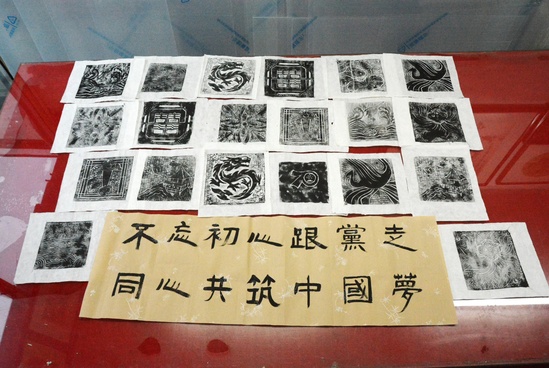 不忘初心跟黨走
同心共筑中國夢